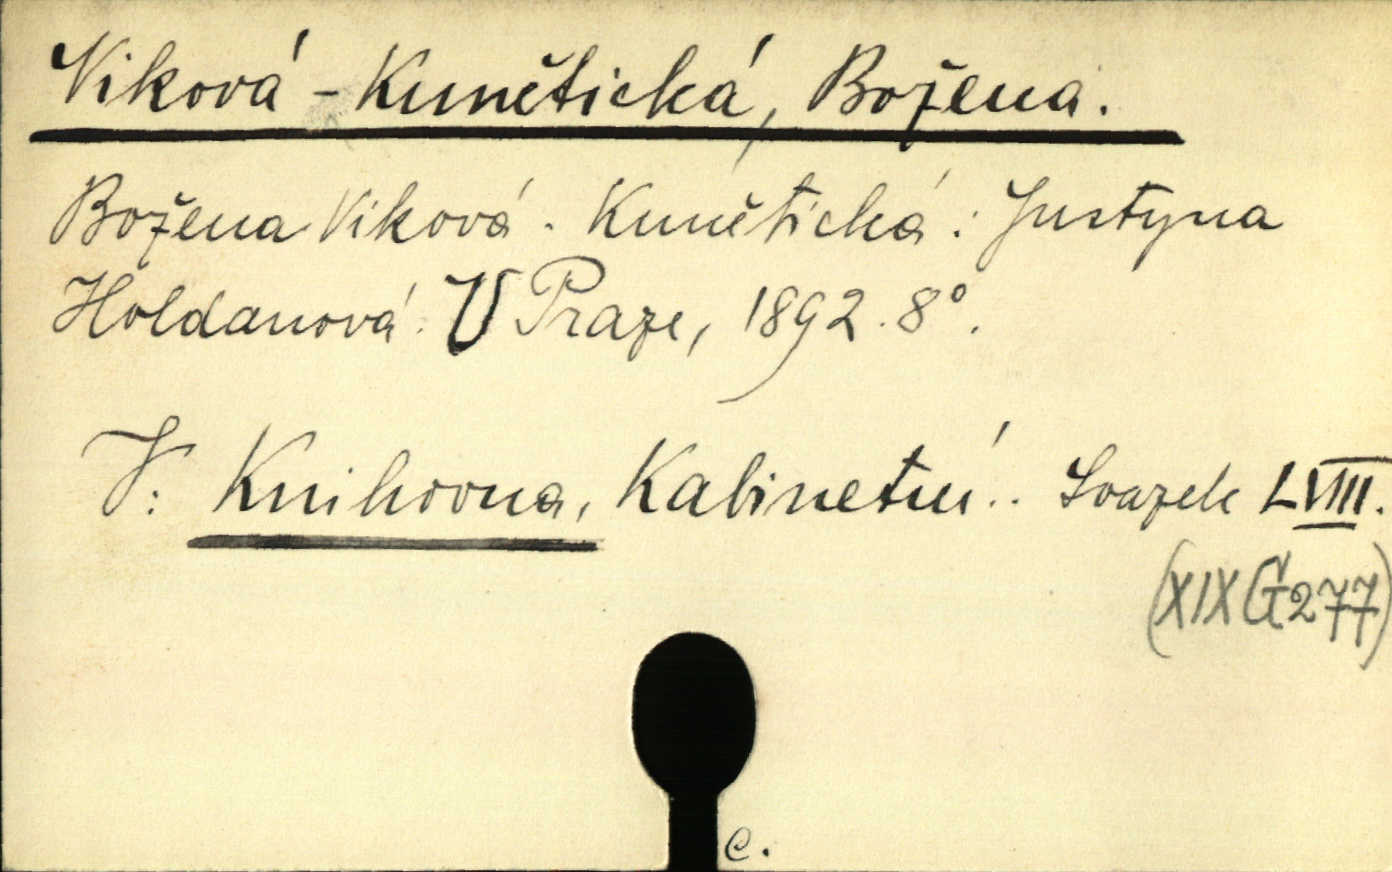 Viková-Kunětická, Božena.
Božena Viková-Kunětická: Justyna
Holdanová. V Praze, 1892. 8°.
V: Knihovna, Kabinetní.. Svazek LVIII.
(XIX G 277)
C.